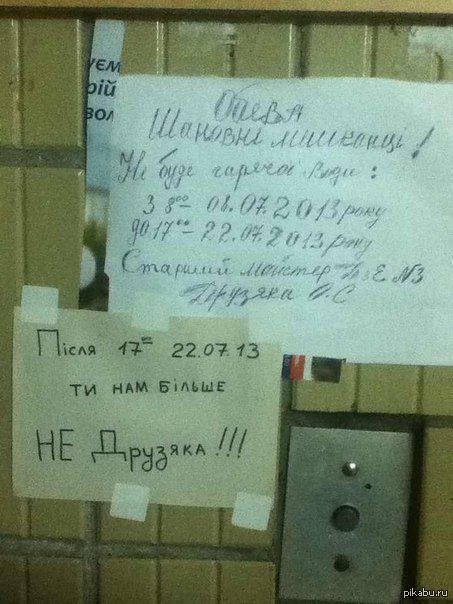 уєм
рій
вол
Обява
Шановні мешканці!
Не буде гарячої води:
З 8⁰⁰ - 08.07.2013 року
до 17⁰⁰ - 22.07.2013 року
Старший майстер №3
Друзяка О.С
Після 17⁰⁰ 22.07.13
ти нам більше
НЕ Друзяка!!!
pikabu.ru